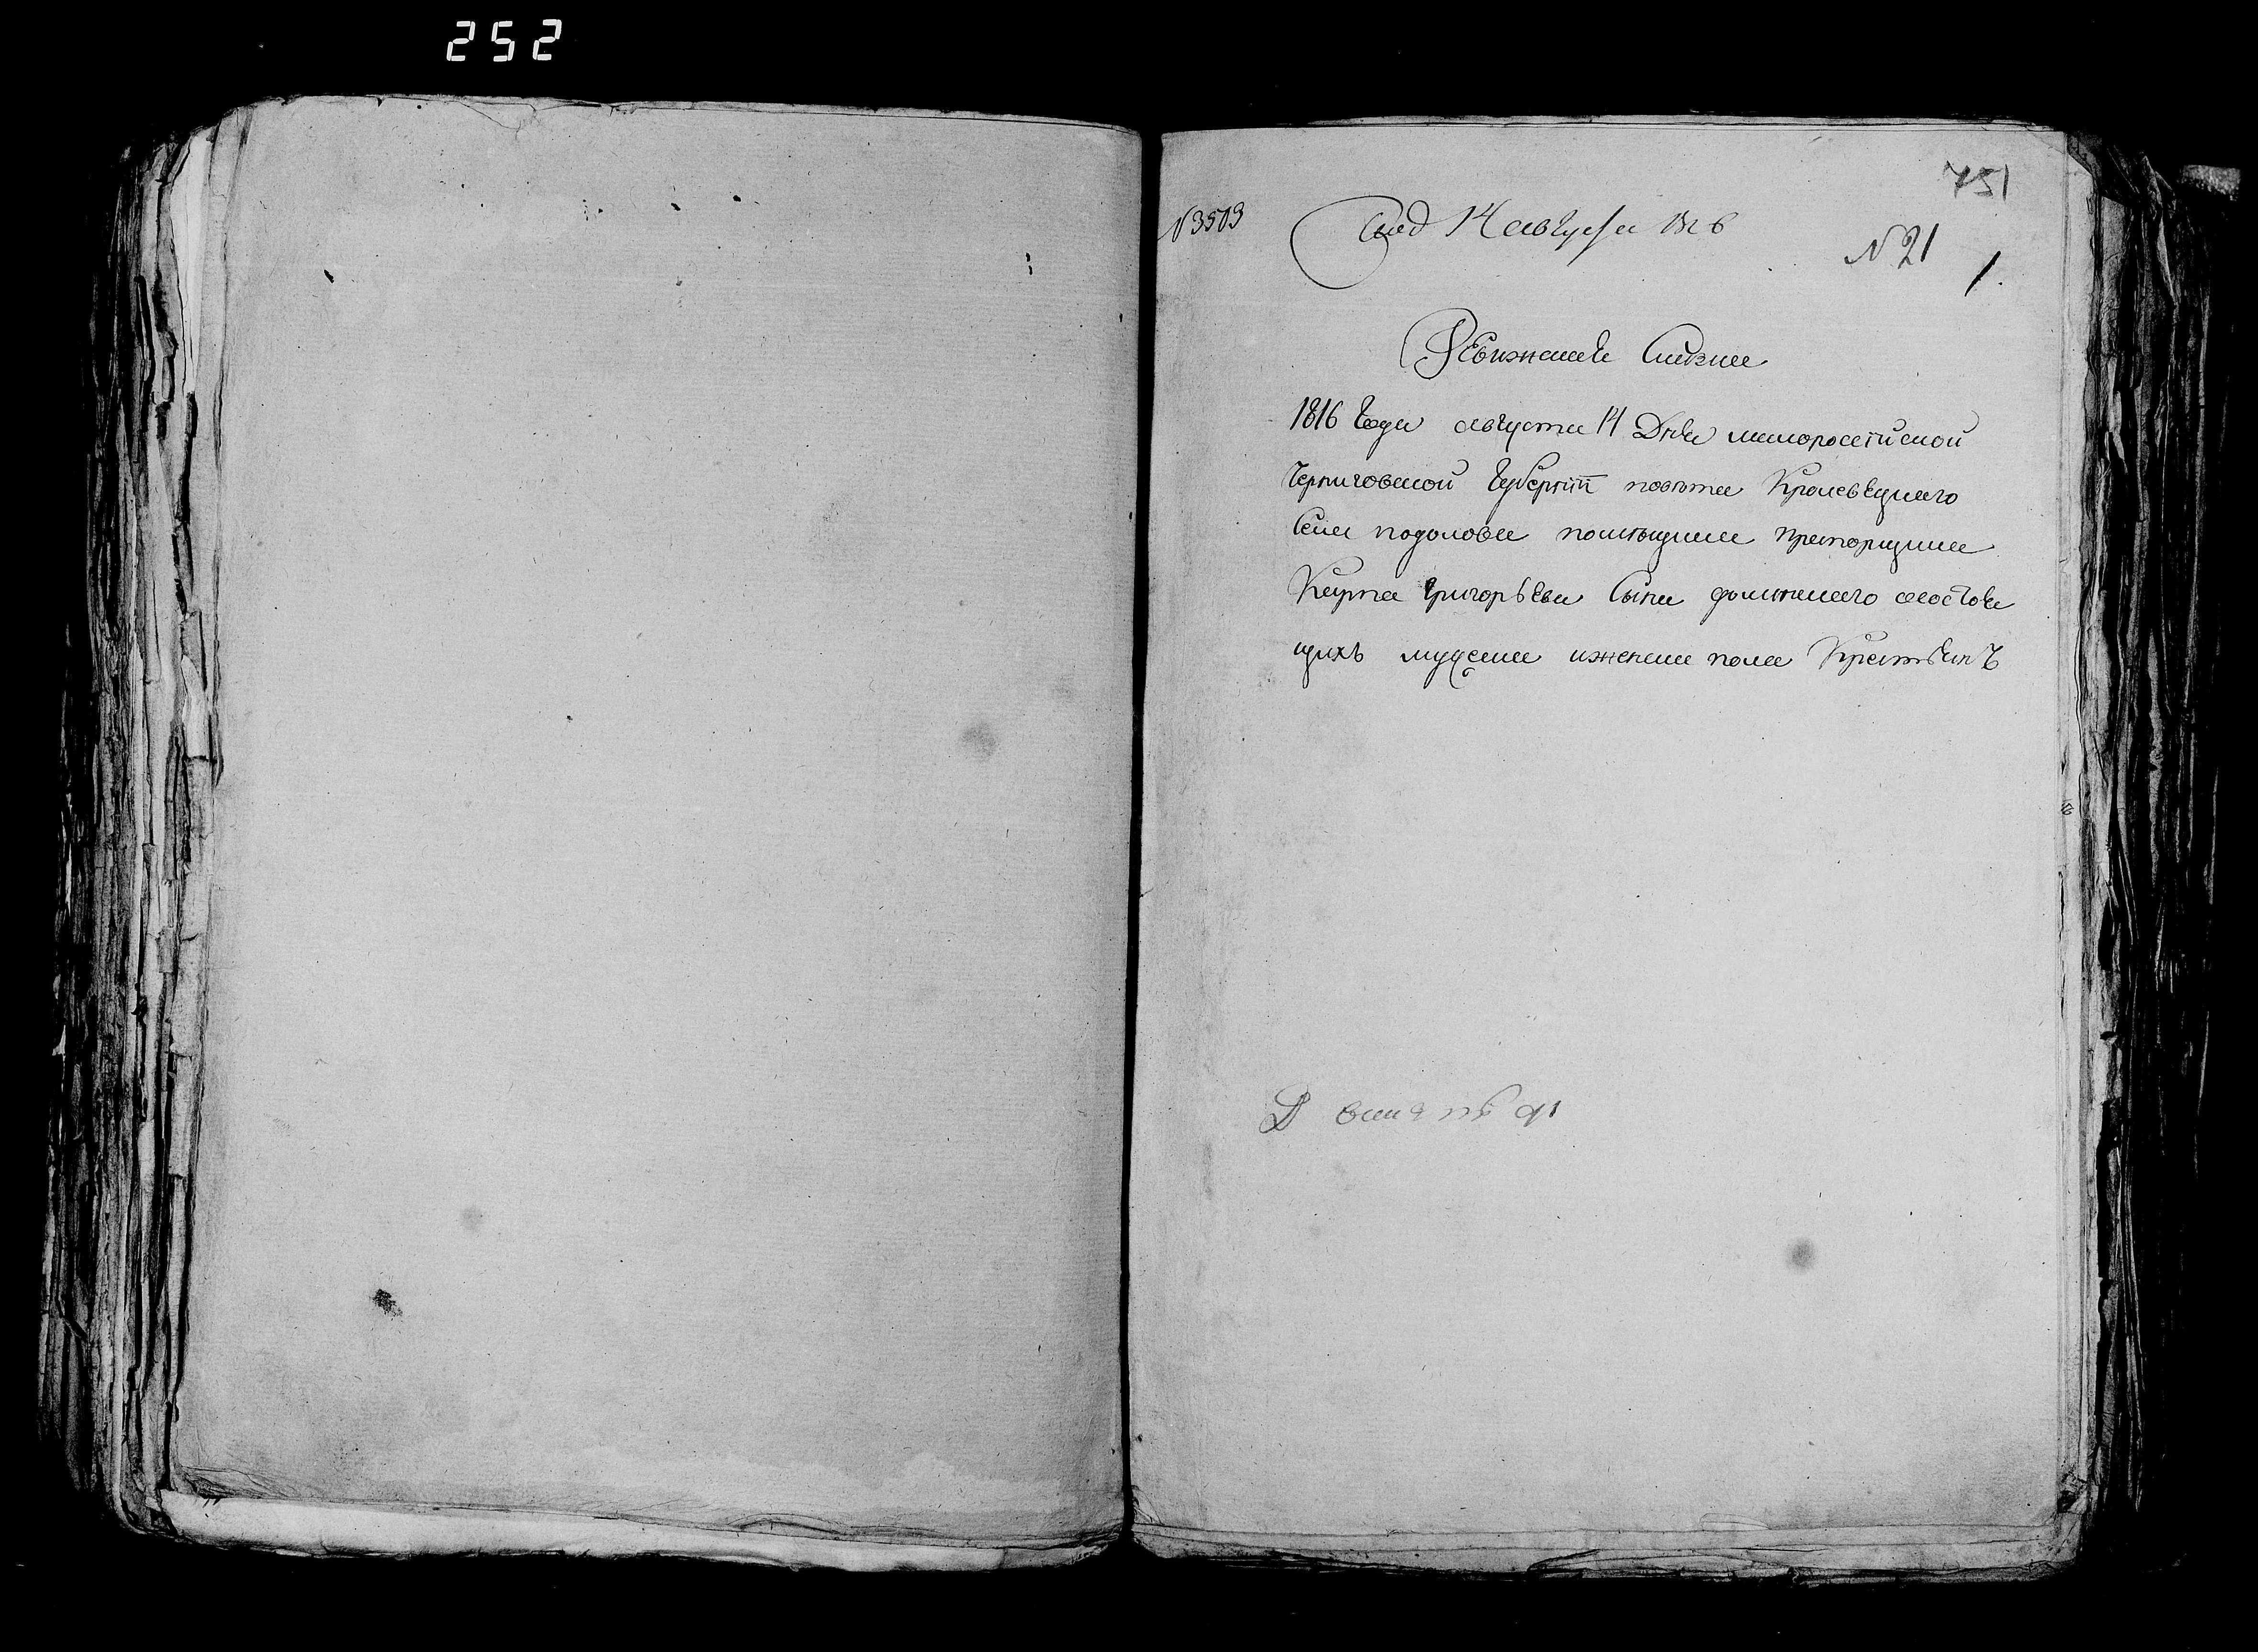 252
751
N 3503
14 августа 1816
N 21
1.
Ревижская Сказка
1816 Года августа 14 Дня малоросейской
Черниговской Губернии повета Кролевецкаго
Села подолова помещика прапорщика
Карпа григорьева Сына состоя
щихъ мужска и женска пола Крестьянъ